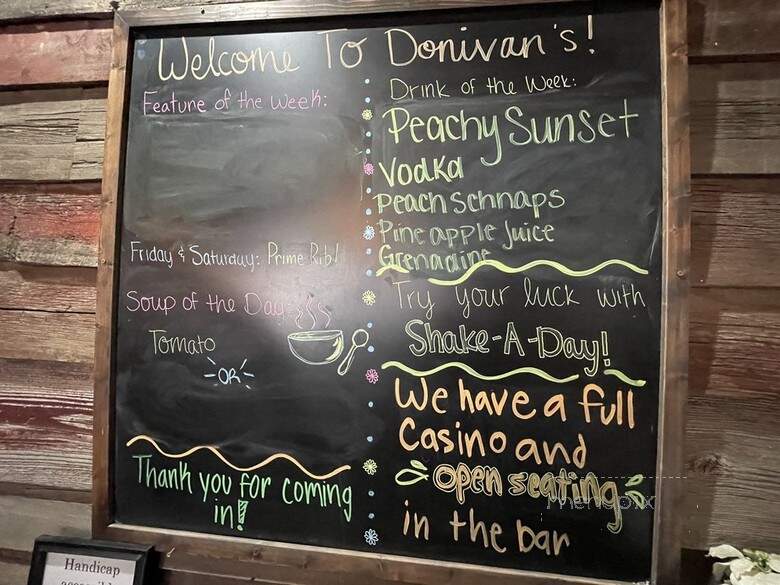 Welcome To Donivan's!
Feature of the Week:
Friday & Saturday: Prime Rib!
Soup of the Day:
Tomato
-OR-
Thank you for coming
in!
Drink of the Week:
Peachy Sunset
Vodka
Peach Schnaps
Pineapple Juice
Grenadine
Try your luck with
Shake-A-Day!
We have a full
Casino and
open seating
in the bar
Handicap
menupix